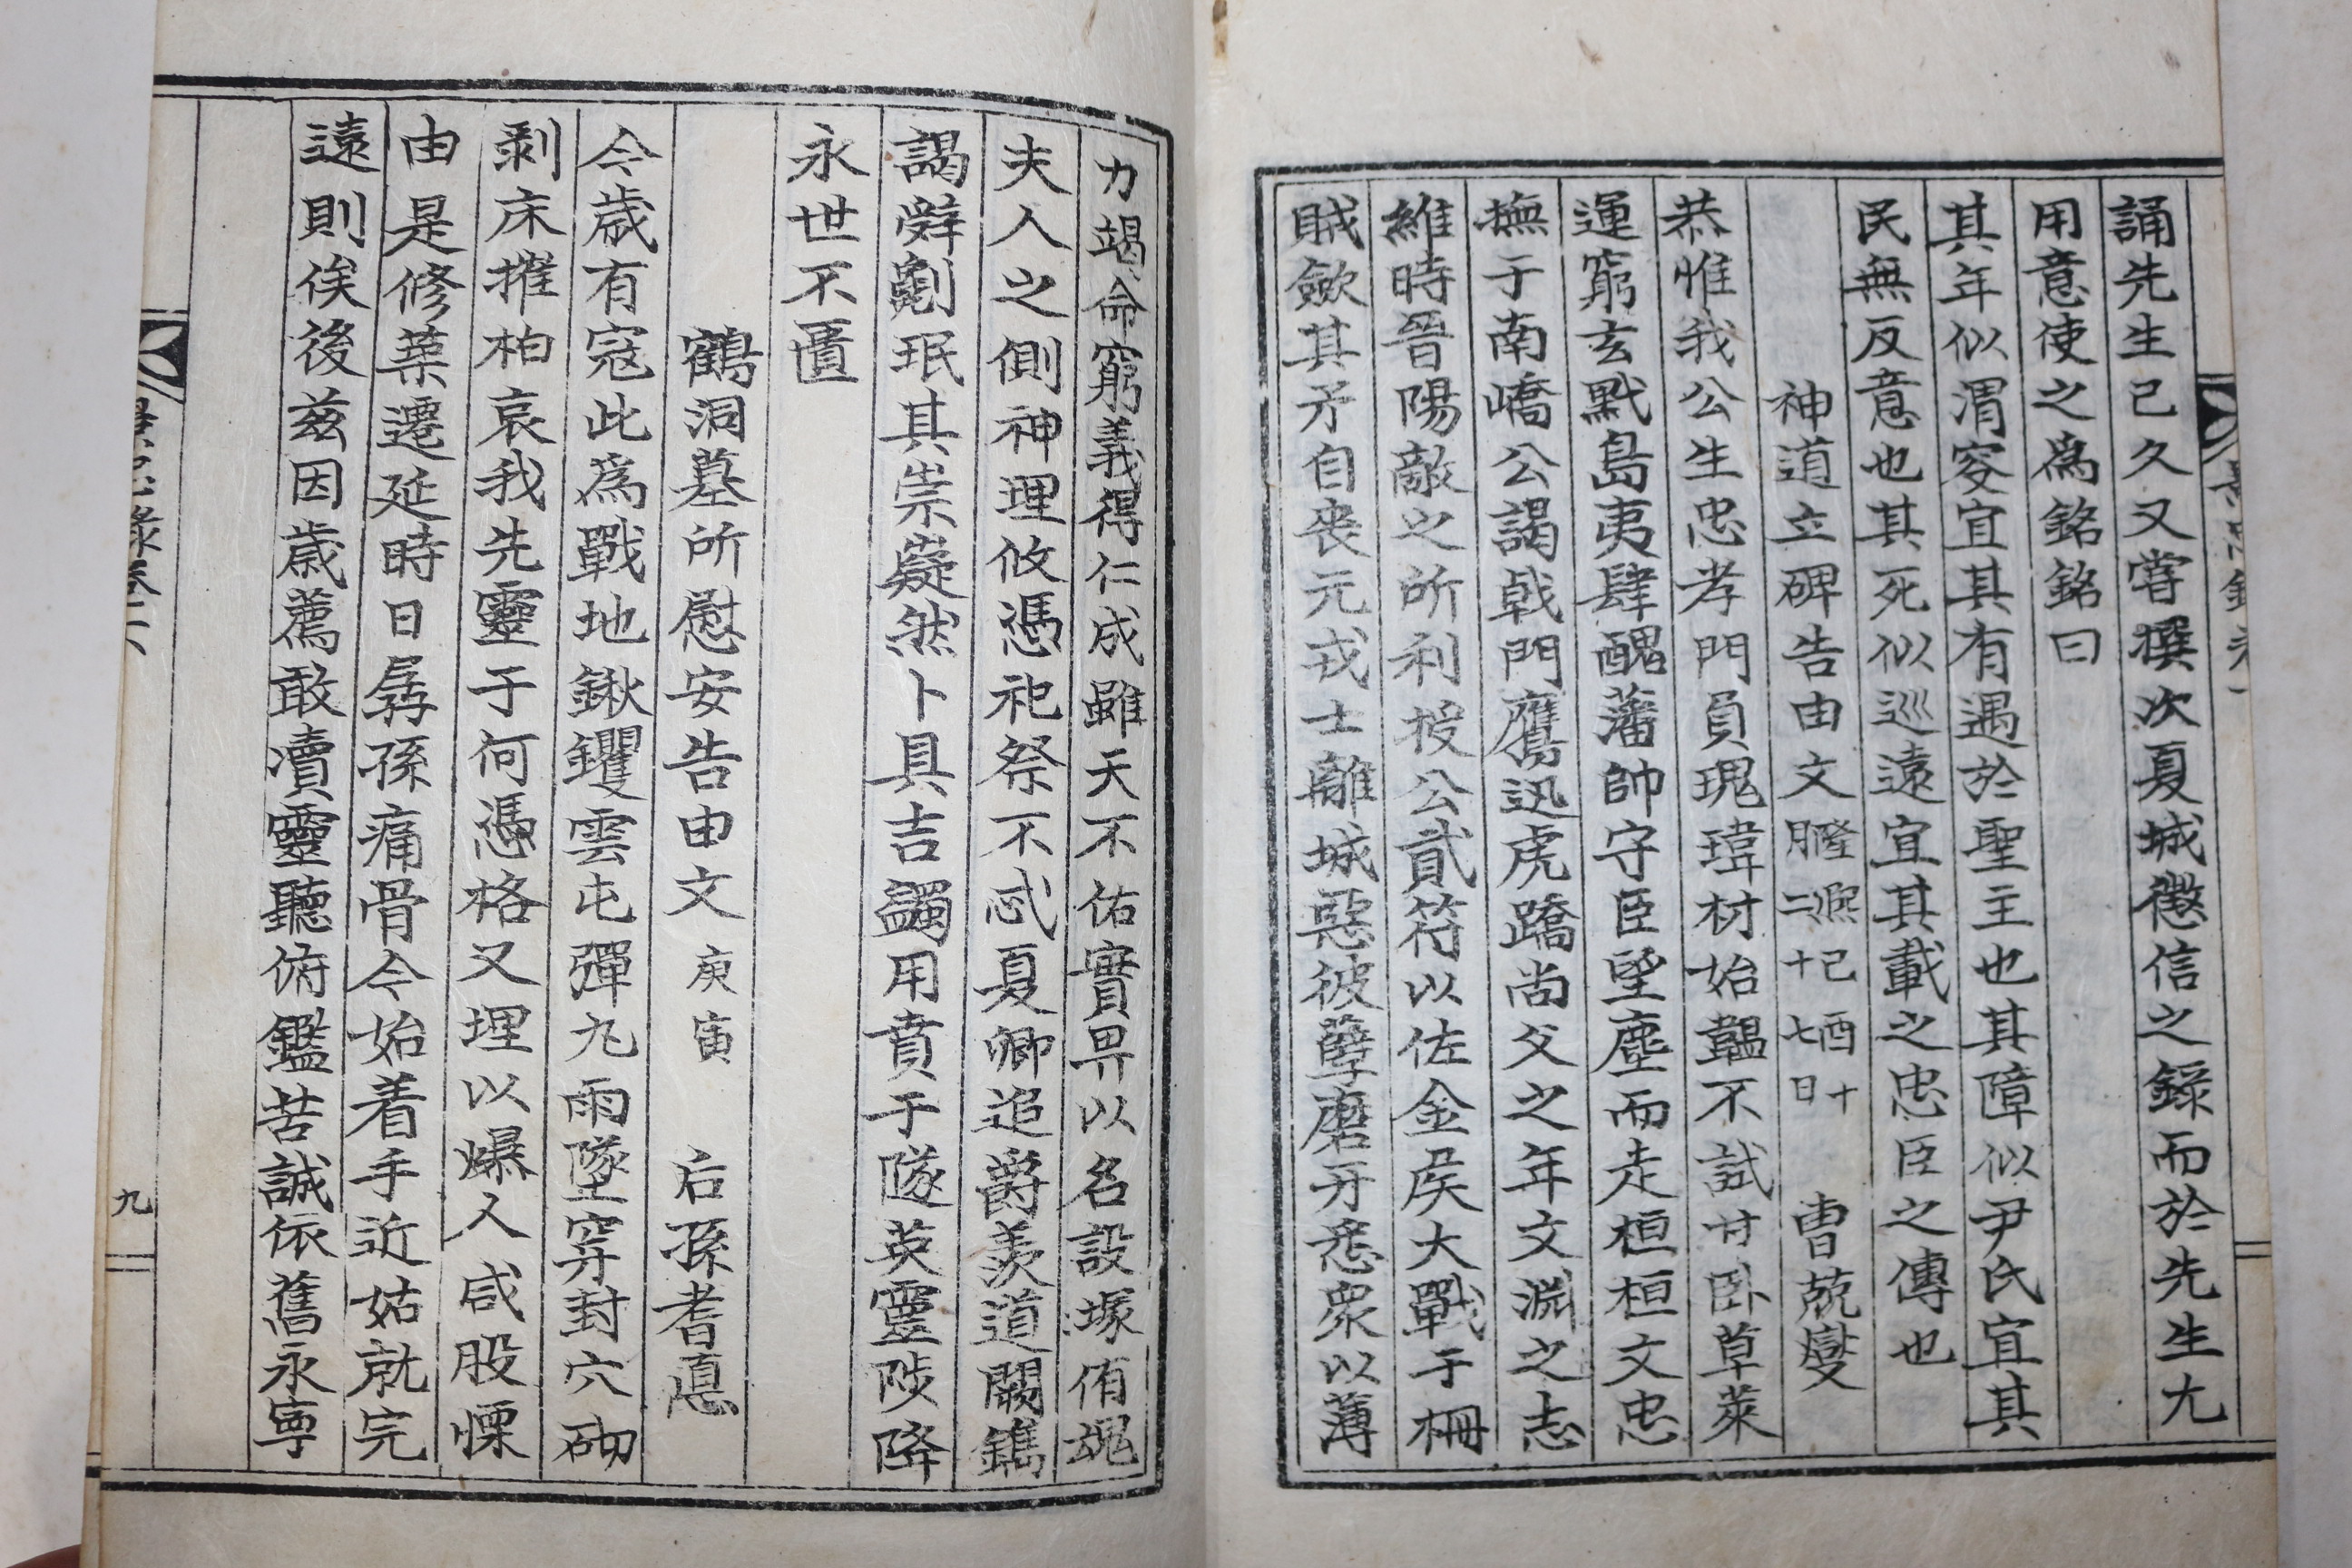 誦先生已久又嘗撰次夏城徵信之錄而於先生尤
用意使之爲銘銘曰
其年似渭容宜其有遇於聖主也其障似尹氏宜其
民無反意也其死似巡遠宜其載之忠臣之傳也
神道立碑告由文 隆熙己酉十月二十七日 曺兢燮
恭惟我公生忠孝門負瑰瑋材始韞不試甘臥草萊
運窮玄黓島夷肆醜藩帥守臣望塵而走桓桓文忠
撫于南嶠公謁戟門鷹迅虎蹻尚父之年文淵之志
維時晉陽敵之所利授公貳符以佐金侯大戰于柵
賊歛其矛自喪元戎士離城惡彼孽磨牙悉衆以薄
力竭命窮義得仁成雖天不佑實畀以名設塚侑魂
夫人之側神理攸憑祀祭不忒夏卿追爵羡道闕鐫
謁辭劖珉其崇嶷然卜具吉蠲用賁于隧英靈陟降
永世不匱
鶴洞墓所慰安告由文 庚寅 后孫耆悳
今歲有寇此爲戰地鍬钁雲屯彈丸雨墜穿封穴砌
剥床摧柏哀我先靈于何憑格又埋以爆人咸股慄
由是修葉遷延時日孱孫痛骨今始着手近姑就完
遠則俟後茲因歲薦敢瀆靈聽俯鑑苦誠依舊永寧
九